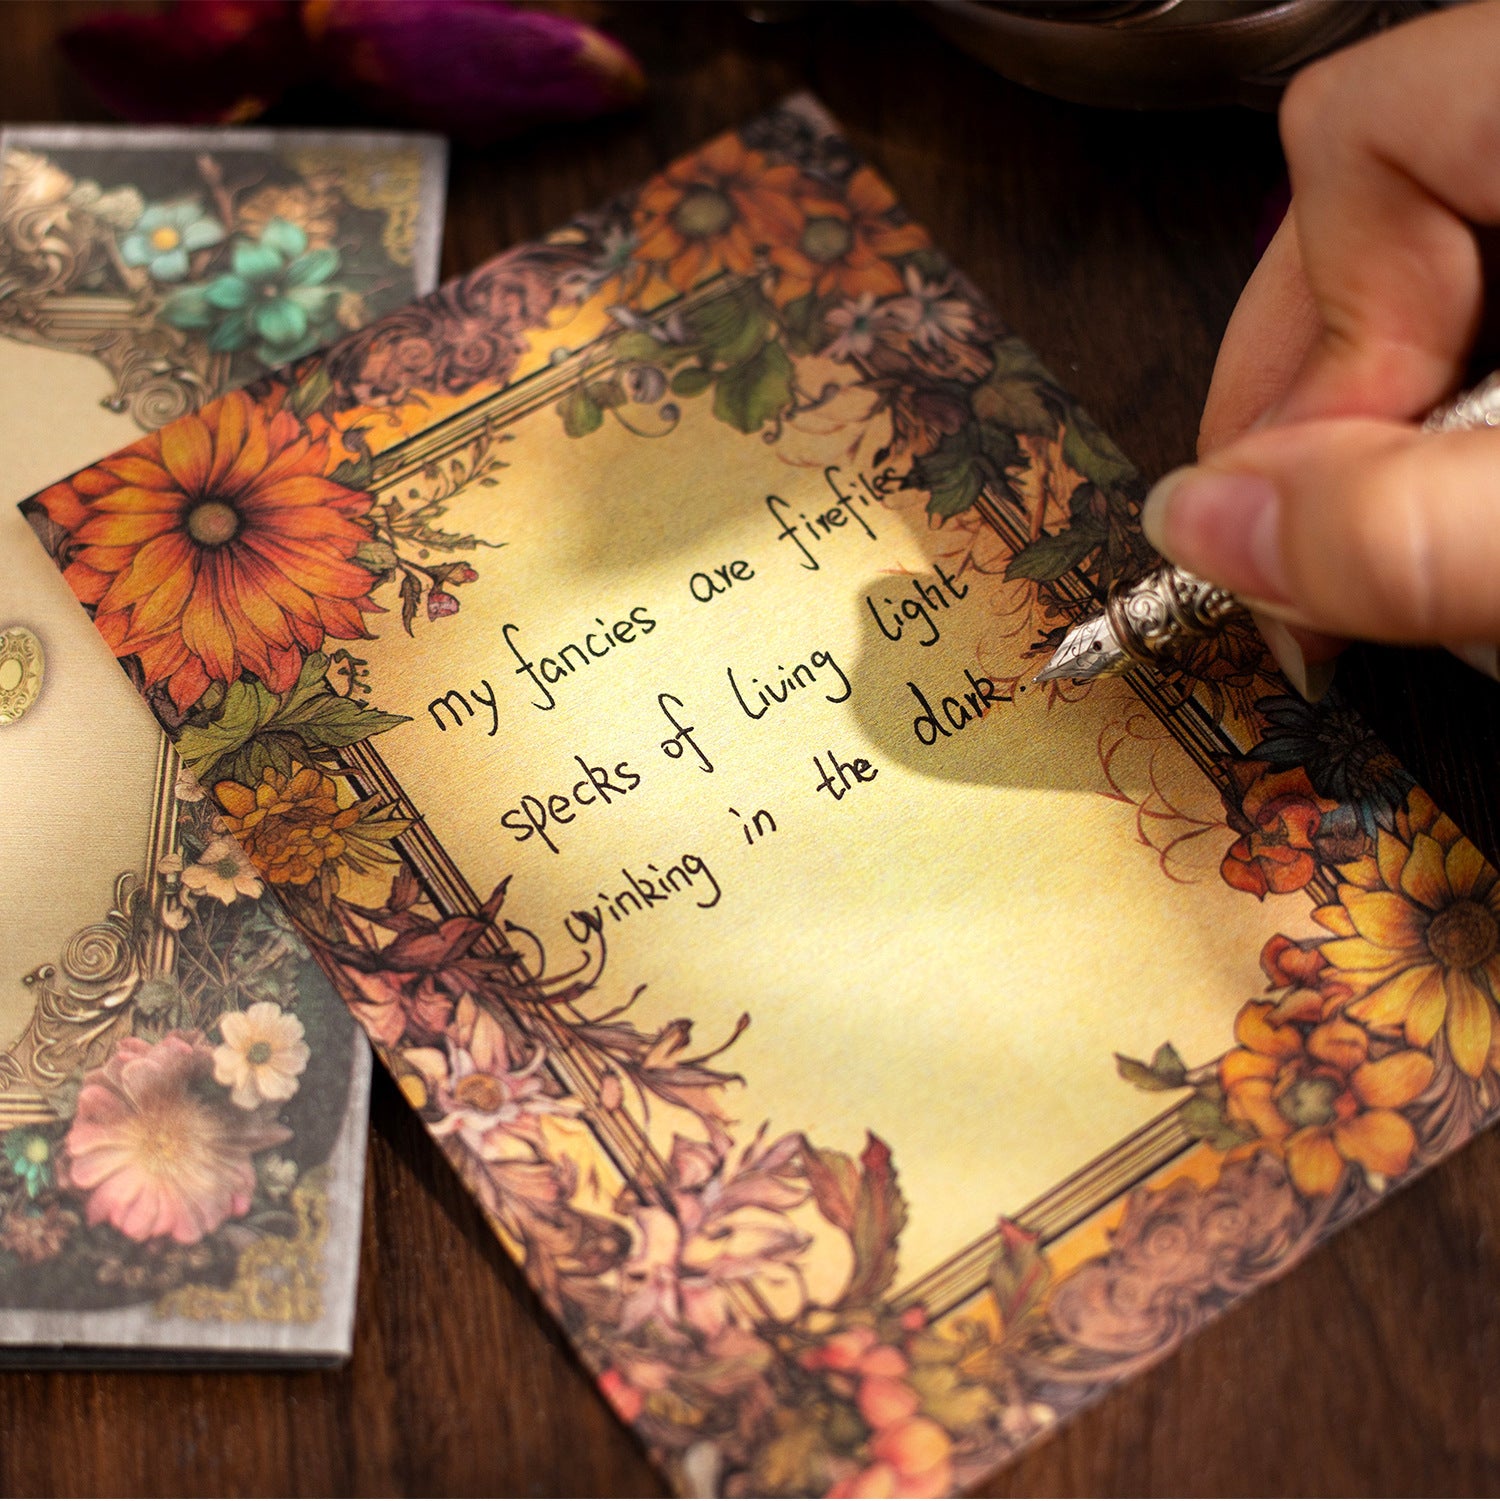 my fancies are firefiles
specks of living light
winking in the dark.